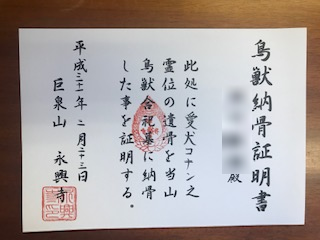 鳥獣納骨証明書
殿
此処に愛犬コナン之
霊位の遺骨を当山
鳥獣合祀墓に納骨
した事を証明する。
平成三十一年二月二十三日
巨泉山 永興寺